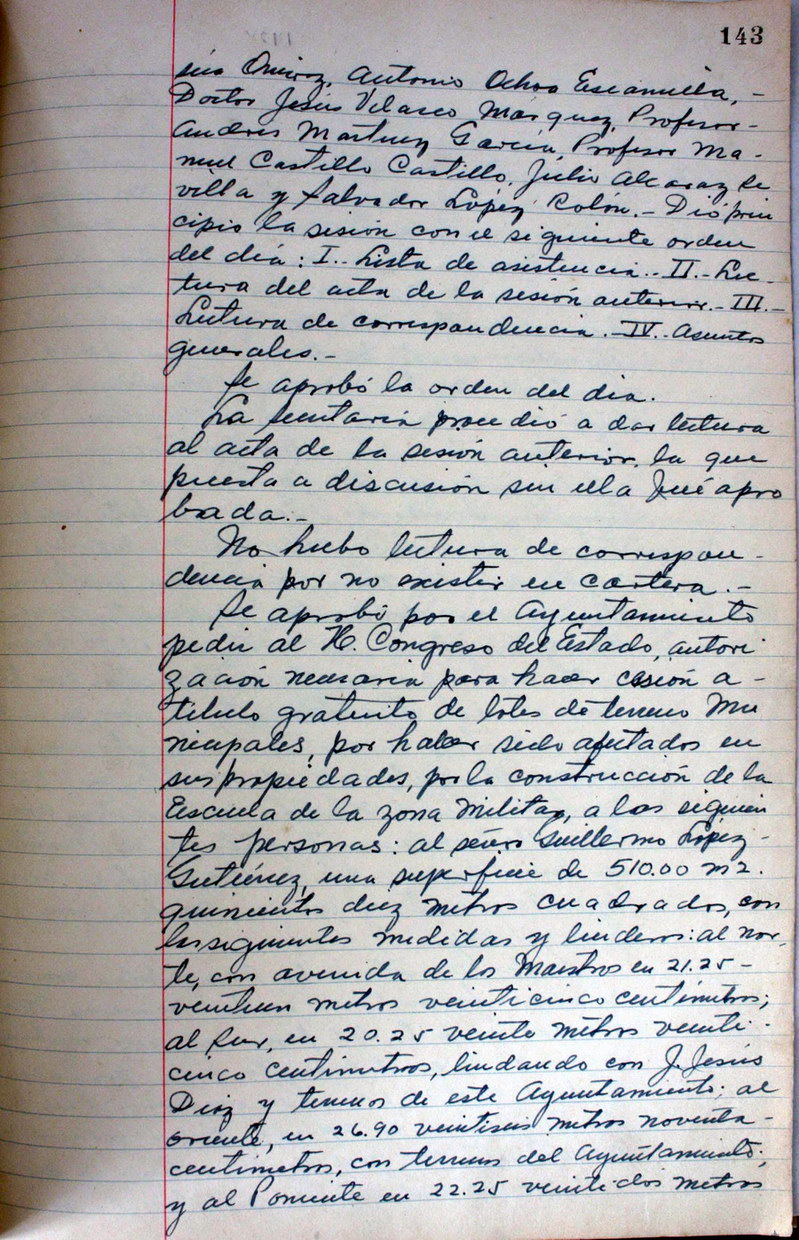 143
sús Quiroz, Antonio Ochoa Escamilla, -
Doctor Jesús Velasco Márquez, Profesor -
Andrés Martinez García, Profesor Ma-
nuel Castillo Castillo, Julio Alcaraz Se
villa y Salvador López Colón.- Dió prin
cipio la sesión con el siguiente orden
del día: I.- Lista de asistencia.- II.- Lec-
tura del acta de la sesión anterior.- III.-
Lectura de correspondencia.- IV.- Asuntos
generales.-
Se aprobó la orden del dia.
La secretaría procedió a dar lectura
al acta de la sesión anterior, la que
puesta a discusión sin ella fué apro
bada.-
No hubo lectura de correspon-
dencia por no existir en cartera.-
Se aprobó por el Ayuntamiento
pedir al H. Congreso del Estado, autori
zación necesaria para hacer cesión a -
titulo gratuito de lotes de terreno Mu
nicipales, por haber sido afectados en
sus propiedades, por la construcción de la
Escuela de la zona Militar, a las siguien
tes personas: al señor Guillermo López -
Gutiérrez, una superficie de 510.00 m2.
quinientos diez metros cuadrados, con
las siguientes medidas y linderos: al nor-
te, con avenida de los Maestros en 21.25 -
veintiun metros veinticinco centimetros;
al Sur, en 20.25 veinte metros veinti-
cinco centimetros, lindando con J. Jesús
Diaz y terrenos de este Ayuntamiento; al
oriente, en 26.90 veintiseis metros noventa -
centimetros, con terrenos del Ayuntamiento;
y al Poniente en 22.25 veintidos metros